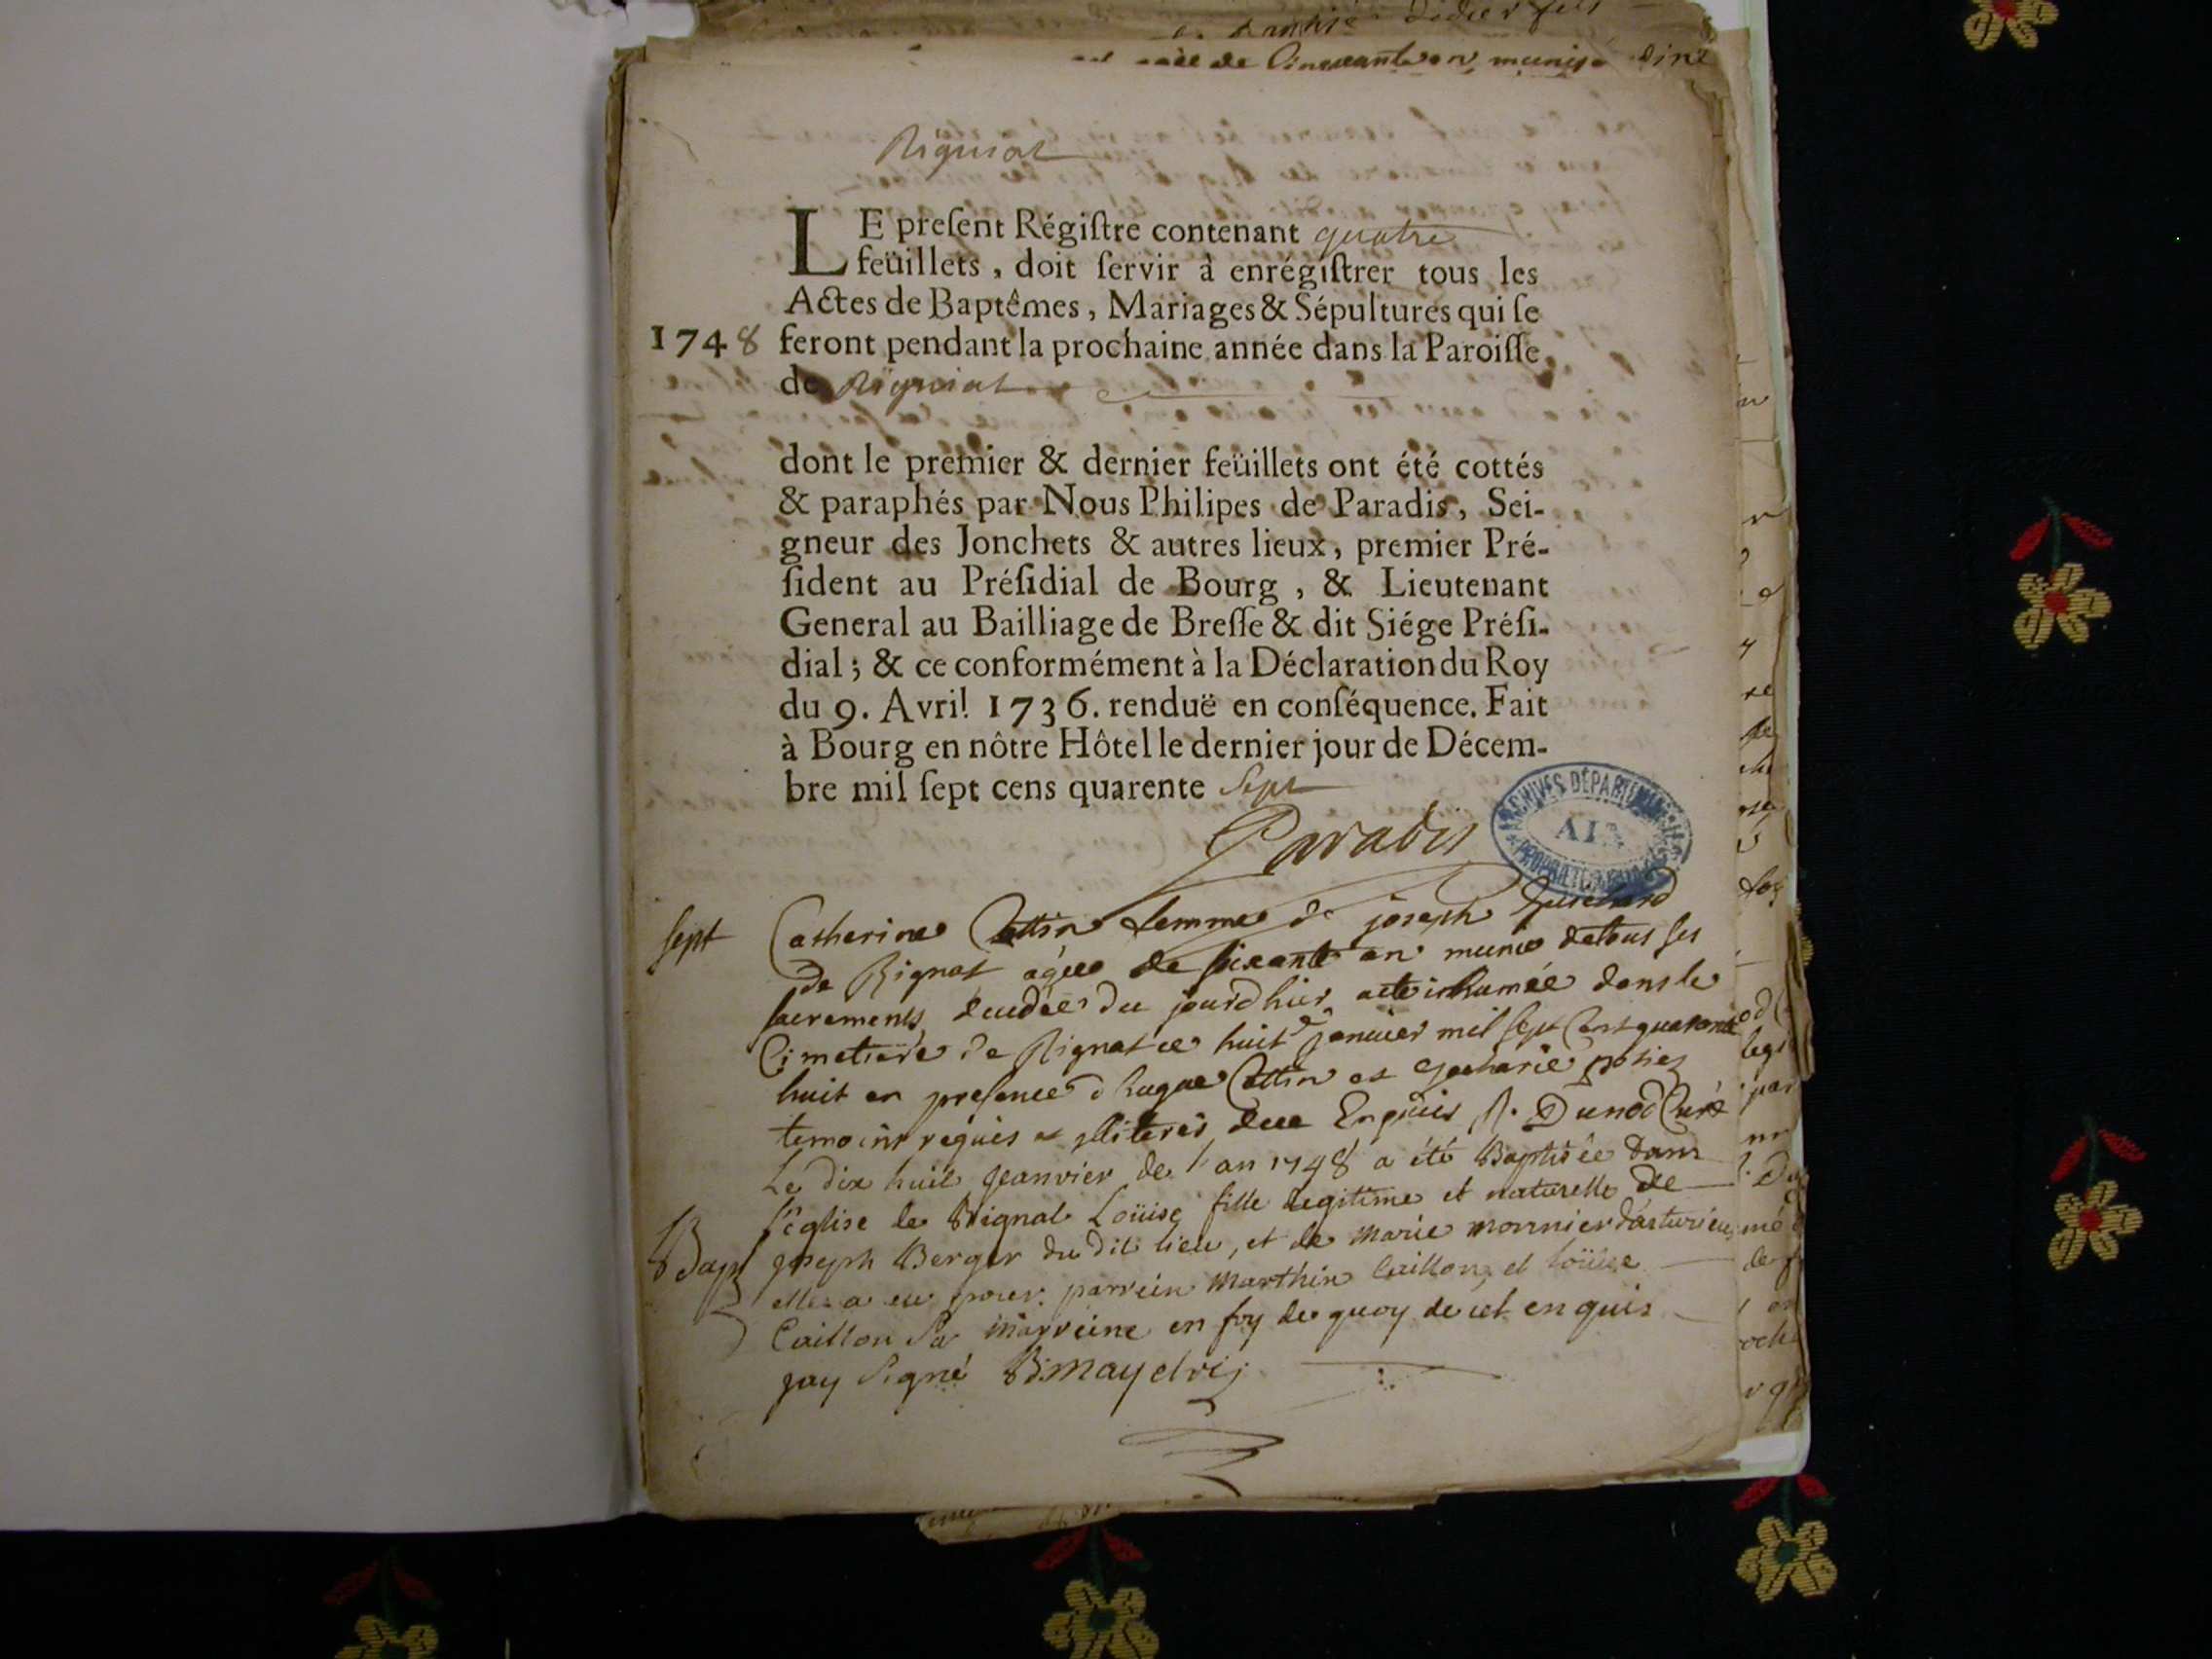 de Cinquante an munis
Rigniat
LE preſent Régiſtre contenant quatre
feüillets, doit ſervir à enrégiſtrer tous les
Actes de Baptêmes, Mariages & Sépultures qui ſe
1748 feront pendant la prochaine année dans la Paroiſſe
de Rigniat
dont le premier & dernier feüillets ont été cottés
& paraphés par Nous Philipes de Paradis, Sei-
gneur des Jonchets & autres lieux, premier Pré-
ſident au Préſidial de Bourg, & Lieutenant
General au Bailliage de Breſſe & dit Siége Préſi-
dial; & ce conformément à la Déclaration du Roy
du 9. Avril 1736. renduë en conſéquence. Fait
à Bourg en nôtre Hôtel le dernier jour de Décem-
bre mil ſept cens quarente Sept
Paradis
ARCHIVES DÉPARTEMENTALES
AIN
sept Catherine Cottin femme de joseph
de Rignat agée de soixante an munie de tous ses
sacrements, decedée du jourdhier a ete inhumée dans le
Cimetiere de Rignat ce huit janvier mil sept cent quarante
huit en presence d hugue Cottin et
temoins requis et illiterés deux Enquis, Dunod Curé
Le dix huit Jeanvier de l'an 1748 a été Baptisée dans
l'Eglise de Rignat Loüise fille legitime et naturelle de
Bapt Joseph Berger du dit lieu, et de Marie monnier
elle a eu pour parrein Marthin Caillon, et loüise
Caillon sa marreine en foy de quoy de cet enquis
jay Signé